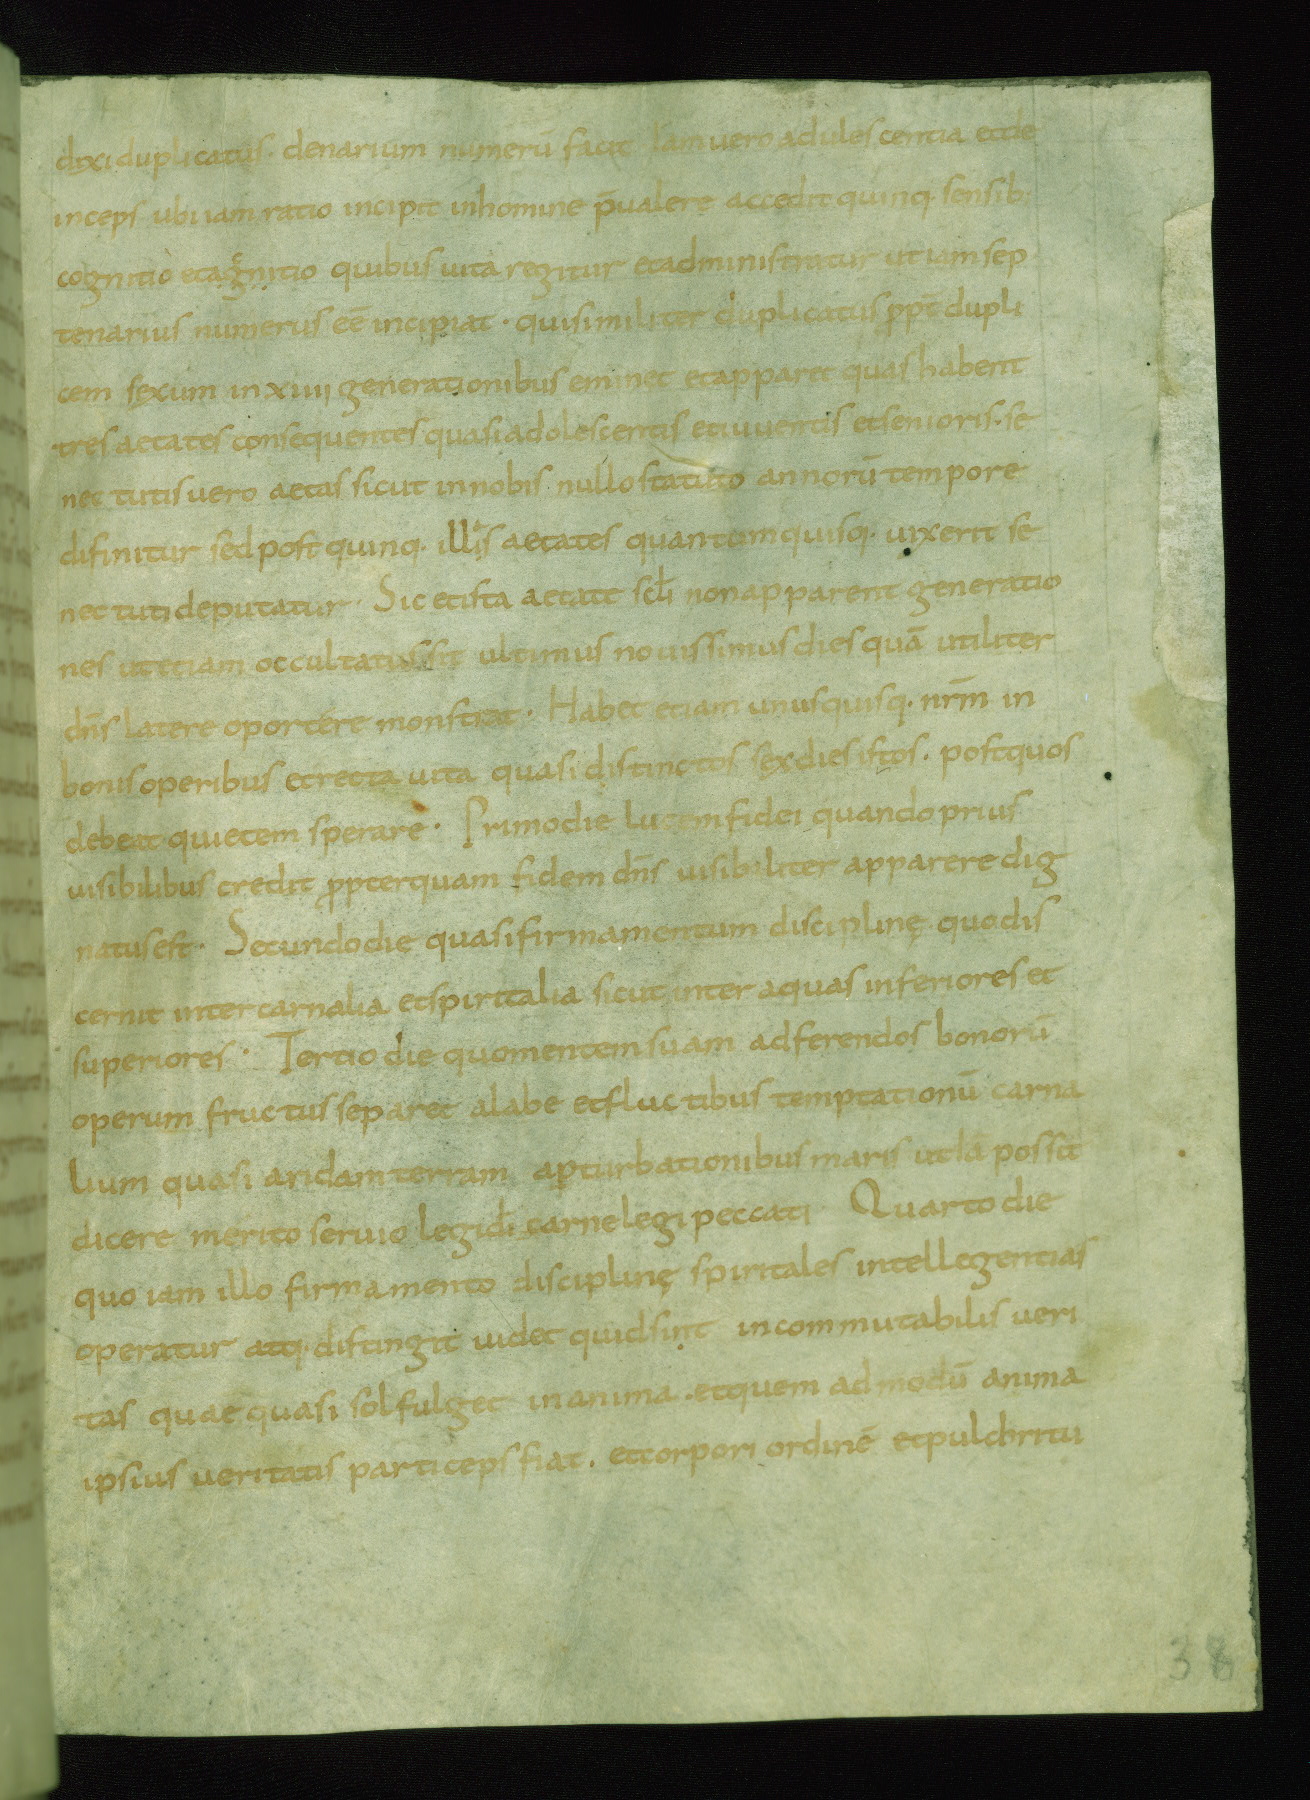 dixi duplicatus · denarium numerū facit Iam uero adulescentia et de
inceps ubi iam ratio incipit in homine p̄ualere accedit quinq· sensib·
cognitio et agnitio quibus uita regitur et administratur ut iam sep
tenarius numerus eē incipiat · qui similiter duplicatus ppt̄ dupli
cem sexum in xiiii generationibus eminet et apparet quas habent
tres aetates consequentes quasi adolescentis et iuuentis et senioris · se
nectutis uero aetas sicut in nobis nullo statuto annorū tempore
difinitur sed post quinq· illas aetates quantum quisq· uixerit se
nectuti deputatur · Sic et ista aetate scl̄i non apparent generatio
nes ut etiam occultatus sit ultimus nouissimus dies quā utiliter
dn̄s latere oportere monstrat · Habet etiam unusquisq· nrm̄ in
bonis operibus et recta uita quasi distinctos sex dies istos · post quos
debeat quietem sperare · Primo die lucem fidei quando prius
uisibilibus credit ppter quam fidem dn̄s uisibiliter apparere dig
natus est · Secundo die quasi firmamentum disciplinę quo dis
cernit inter carnalia et spiritalia sicut inter aquas inferiores et
superiores · Tertio die quo mentem suam ad ferendos bonorū
operum fructus separet a labe et fluctibus temptationū carna
lium quasi aridam terram a pturbationibus maris ut iā possit
dicere merito seruio legi dī carne legi peccati Quarto die
quo iam illo firmamento disciplinę spiritales intellegentias
operatur atq· distingit uidet quid sint incommutabilis ueri
tas quae quasi sol fulget in anima · et quem ad modū anima
ipsius ueritatis particeps fiat · et corpori ordinē et pulchritu
38